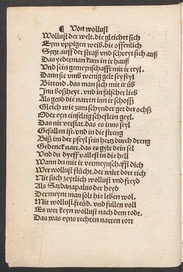 Von wollust
Wollust der welt, die glychet sich
Eym üppigen weib, die offenlich
Sytzt auff der straß und schryt sich auß
Das yederman kum in ir hauß
Und sein gemeynschafft mit ir teyl,
Dann sie umb wenig gelt sey feyl
Bittend, das man sich mit ir üb
Inn boßheyt, und in falscher lieb
Als gend die narren inn ir schoß
Gleich wie zum schynder get der ochß
Oder eyn einfeltig scheflin geyl,
Das nit verstat, das es inns seyl
Gefallen ist, und in die streng
Biß im der pfyl sein hertz durch dreng
Gedenck narr, das es gylt dein sel
Und du dyeff fallest in die hell
Wann du mit ir vermeynschafft dich
Wer wollust flücht, der würt dort rich
Nit such zeytlich wollust und freyd
Als Sardanapalus der heyd
Der meynt man solt hie leben wol.
Mit wollust, freüd, und füllen voll
Es wer keyn wollust nach dem todt.
Das was eyns rechten narren rott